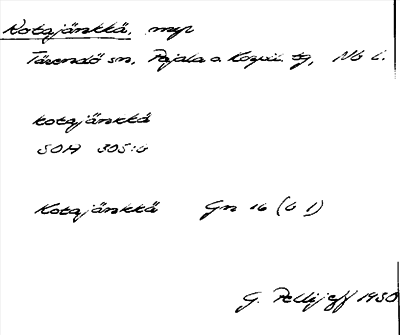 Kotajänkkä, myr
Tärendö sn, Pajala o Korpil. tg, Nb l.
kotajänkkä
SOA 305:6
Kotajänkkä Gn 16 (6 1)
G. Pellijeff 1950